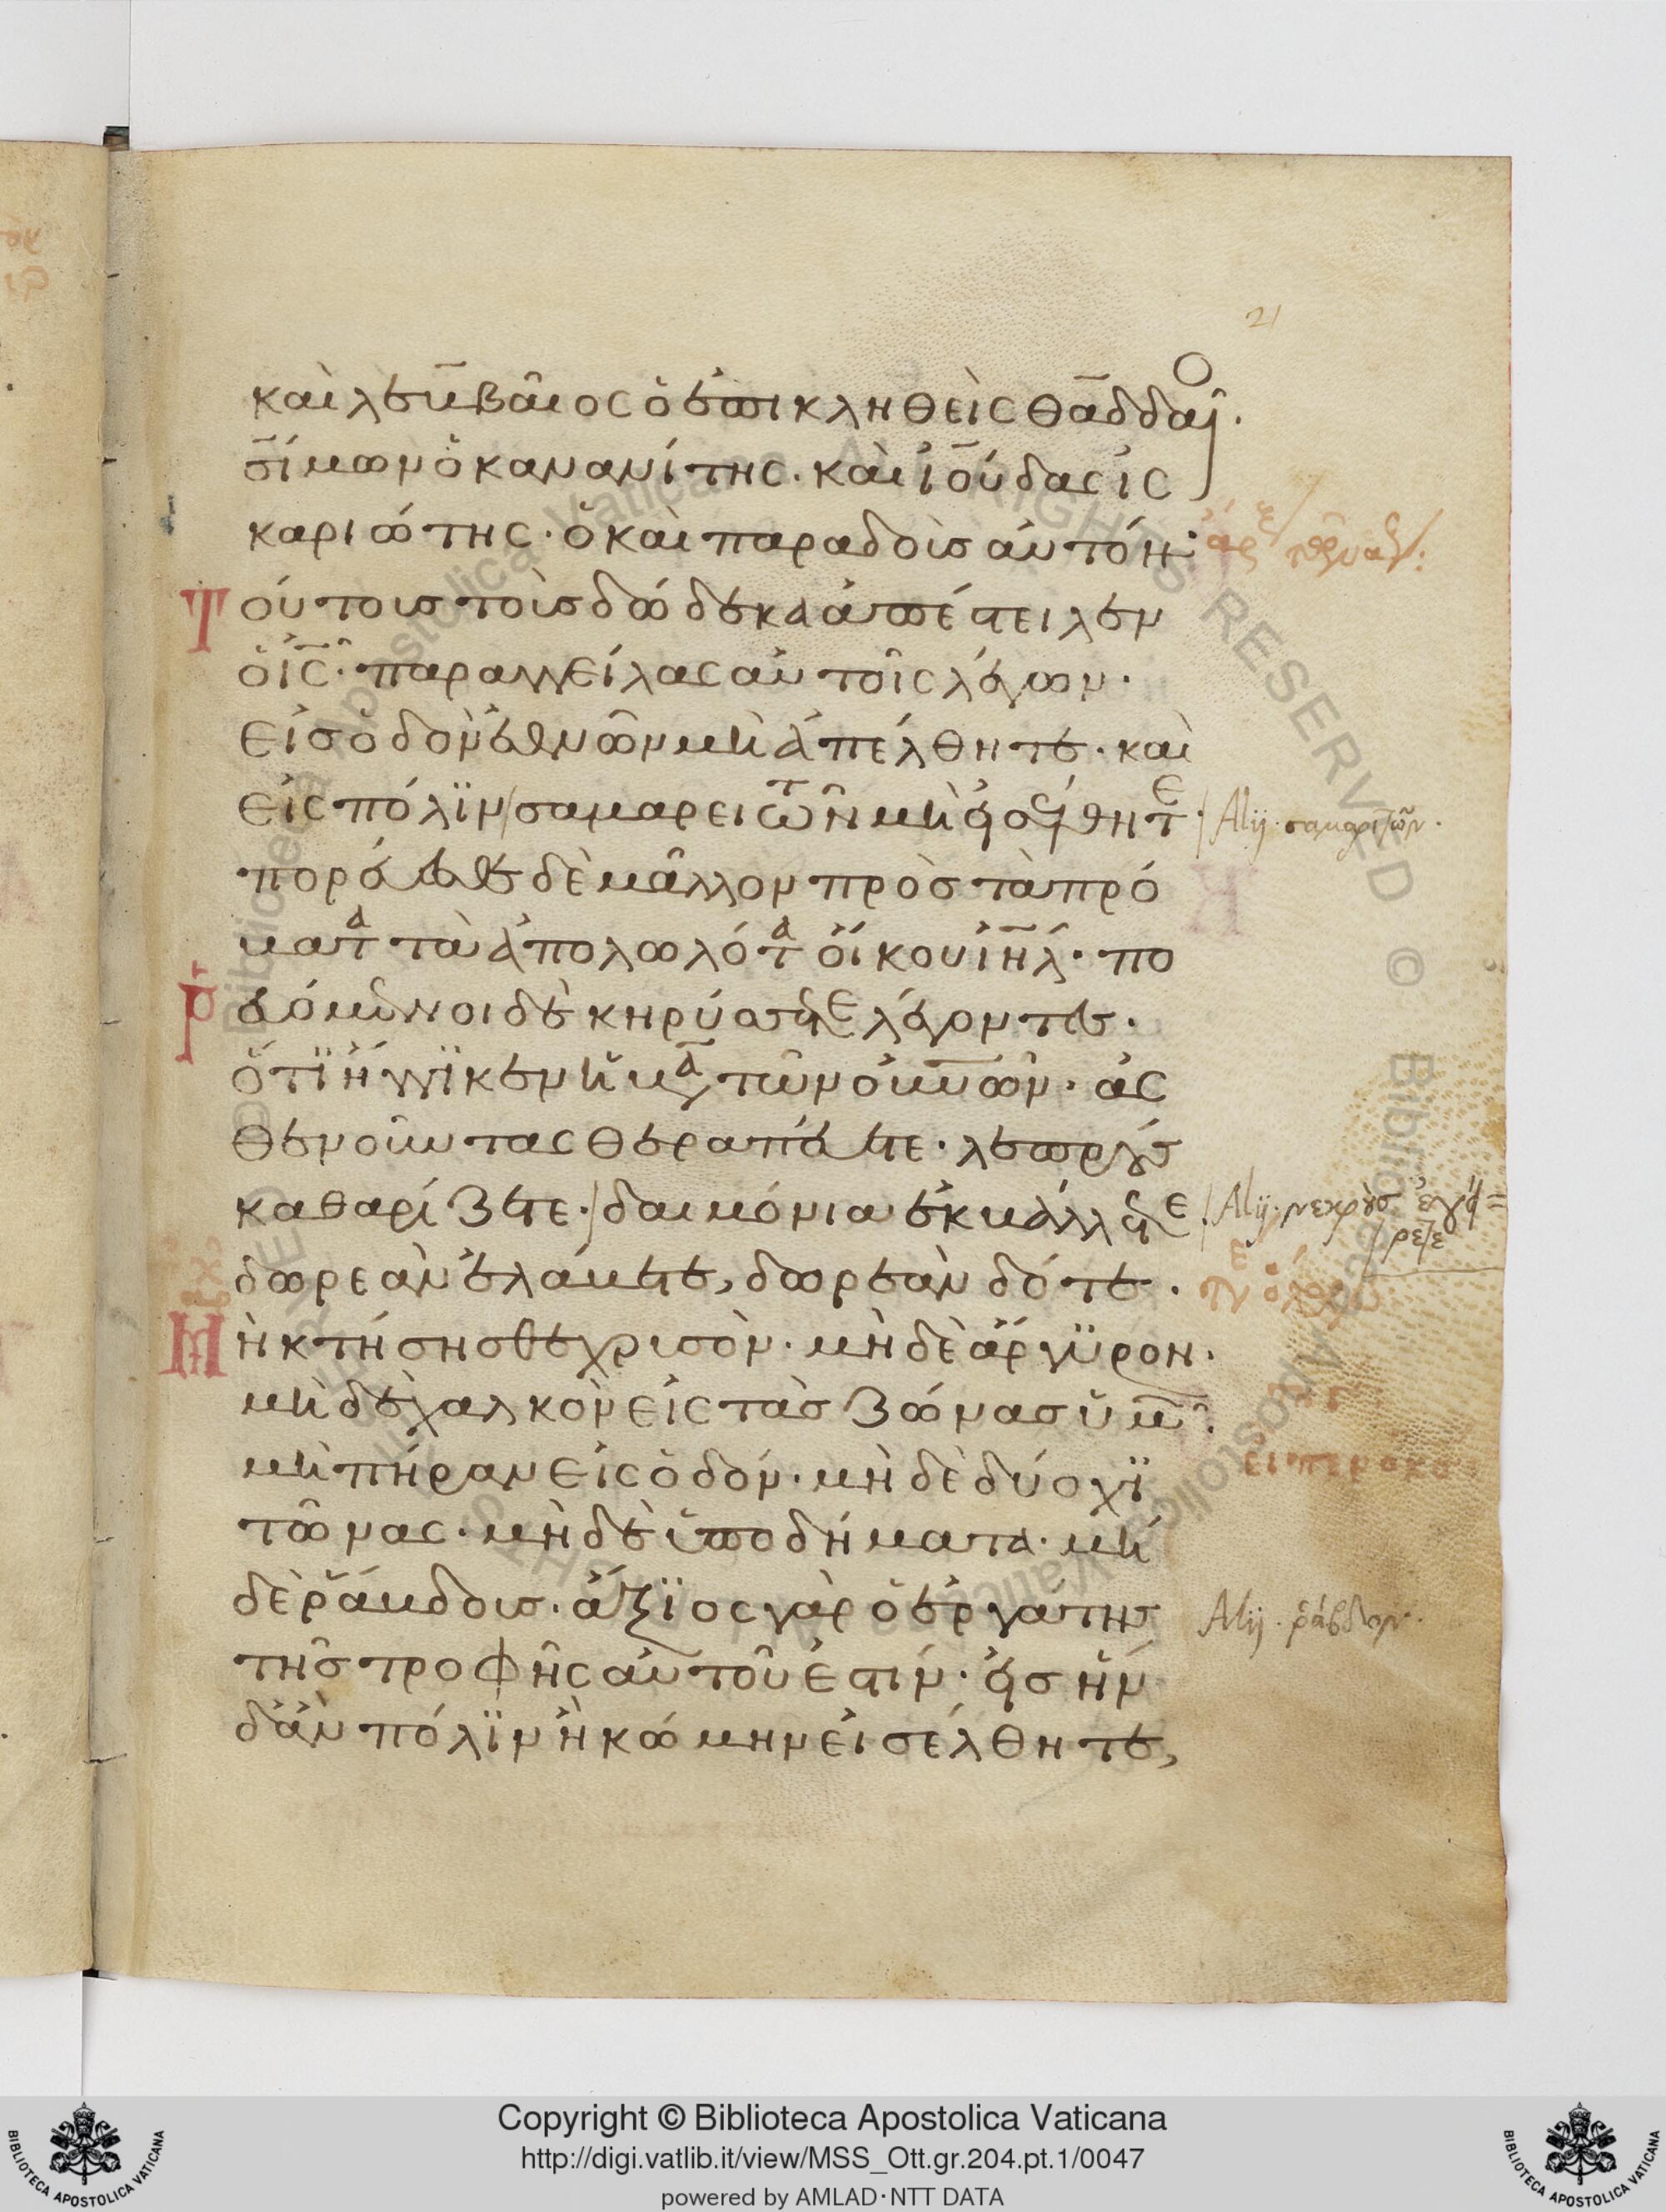 21
καὶ λεμβαῖος ὁ ἐπικληθεὶς θαδδαῖο·
σίμων ὁ κανανίτης· καὶ ἰούδας ἰς
καριώτης· ὁ καὶ παραδοὺσ αὐτόν:
Τούτουσ τοὺσ δώδεκα ἀπέστειλεν
ὁ ις̅· παραγγείλας αὐτοῖς λέγων·
εἰσ ὁδὸν ἐθνῶν μὴ ἀπέλθητε· καὶ
εἰς πόλϊν / σαμαρειτῶν μὴ εἰσέλθητε· / Alij· σαμαριτῶν·
πορεύεσθε δὲ μᾶλλον πρὸσ τὰ πρό
ματα τὰ ἀπολωλότα οἴκου ιηλ̅· πο
ρευόμενοι δὲ κηρύσσετε λέγοντες·
ὅτϊ ἤγγϊκεν ἡ βα τῶν ουνων̅· ἀς
θενοῦντας θεραπεύετε· λεπροὺσ
καθαρίζετε· / δαιμόνια ἐκβάλλετε· / Alij· νεκροὺσ ἐγεί=
ρετε
δωρεὰν ἐλάβετε, δωρεὰν δότε·
Μὴ κτήσησθε χρυσὸν· μὴδὲ ἄργϋρον·
μὴδὲ χαλκὸν εἰς τὰσ ζώνασ ὑμ̅·
μὴ πήραν εἰς ὁδόν· μὴδὲ δύο χϊ
τῶνας· μὴδὲ ὑποδήματα· μή
δὲ ῥάβδουσ· ἄξϊος γὰρ ὁ ἐργάτησ Alij· ῥάβδον·
τῆσ τροφῆς αὐτοῦ ἐστιν· εἰσ ἣν
δ ἂν πόλϊν ἢ κώμην εἰσέλθητε,
Copyright © Biblioteca Apostolica Vaticana
http://digi.vatlib.it/view/MSS_Ott.gr.204.pt.1/0047
powered by AMLAD·NTT DATA
BIBLIOTECA APOSTOLICA VATICANA
BIBLIOTECA APOSTOLICA VATICANA